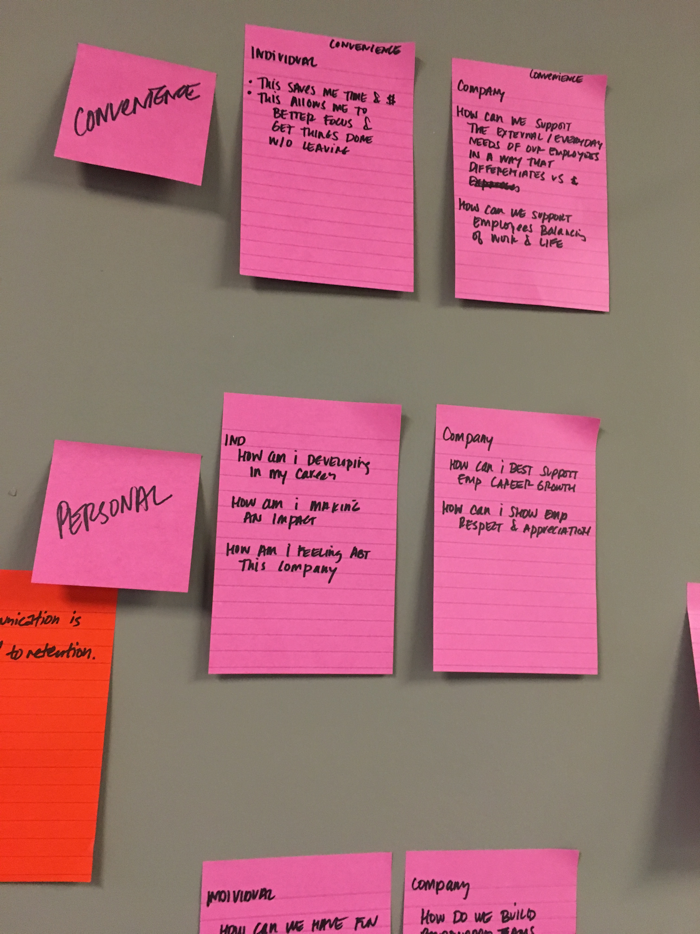 CONVENIENCE
CONVENIENCE
INDIVIDUAL
• THIS SAVES ME TIME & $
• THIS ALLOWS ME TO
BETTER FOCUS &
GET THINGS DONE
W/O LEAVING
CONVENIENCE
Company
HOW CAN WE SUPPORT
THE EXTERNAL/EVERYDAY
NEEDS OF OUR EMPLOYEES
IN A WAY THAT
DIFFERENTIATES VS &
HOW CAN WE SUPPORT
EMPLOYEES BALANCING
OF WORK & LIFE
PERSONAL
IND
HOW am i DEVELOPING
IN my CAREER
HOW am i MAKING
AN IMPACT
HOW AM I FEELING ABT
THIS COMPANY
Company
HOW CAN i BEST SUPPORT
EMP CAREER GROWTH
HOW CAN i SHOW EMP
RESPECT & APPRECIATION
is
to retention.
INDIVIDUAL
HOW CAN WE HAVE FUN
Company
HOW DO WE BUILD